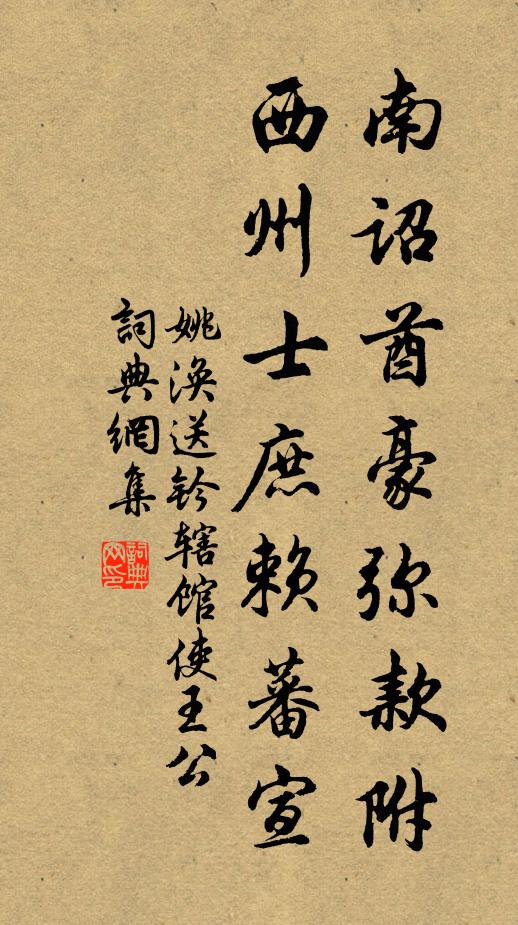 南詔酋豪弥款附
西州士庶赖蕃宣
姚涣送钤辖馆使王公
詞典網集
詞典网印